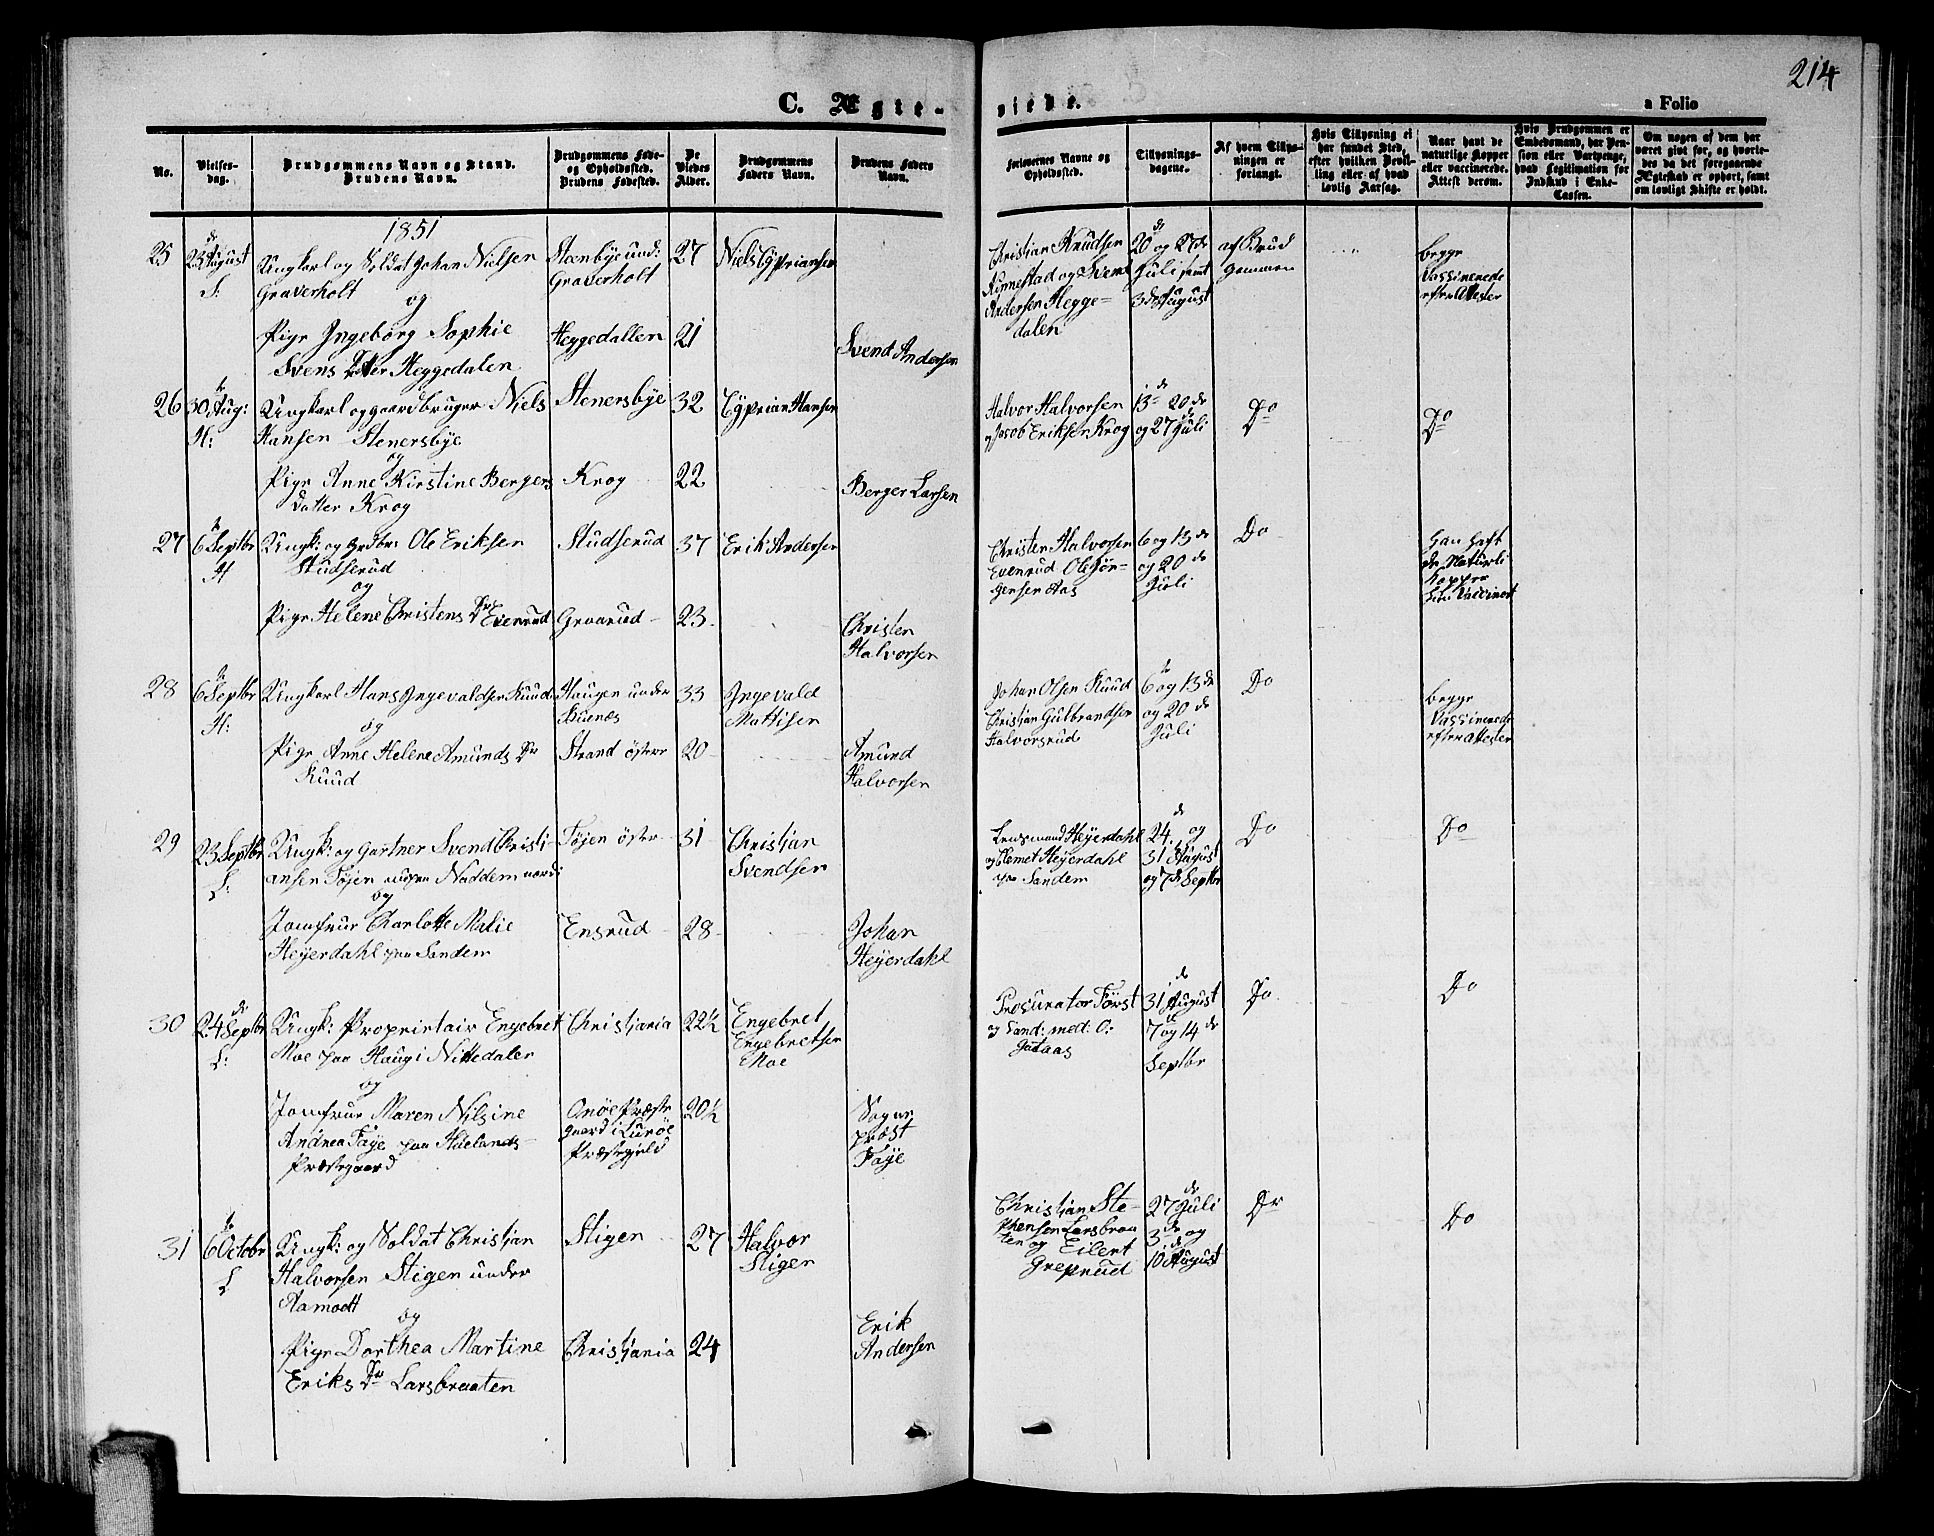 214
C. Ægte-
viede.
a Folio
No.
Vielses-
dag.
Brudgommens Navn og Stand.
Brudens Navn.
Brudgommens Føde-
og Opholdssted.
Brudens Fødested.
De
Viedes
Alder.
Brudgommens
Faders Navn.
Brudens Faders
Navn.
Forlovernes Navne og
Opholdssted.
Tillysnings-
dagene.
Af hvem Tillys-
ningen er
forlangt.
Hvis Tillysning ei
har fundet Sted,
efter hvilken Bevil-
ling eller af hvad
lovlig Aarsag.
Naar havt de
naturlige Kopper
eller vaccinerede.
Attest derom.
Hvis Brudgommen er
Embedsmand, har Pen-
sion eller Vartpenge,
hvad Legitimation for
Indskud i Enke-
Cassen.
Om nogen af dem har
været gift for, og hvorle-
des da det foregaaende
Ægteskab er ophørt, samt
om lovligt Skifte er holdt.
1851
25
23de August
S:
Ungkarl og Soldat Johan Nielsen
Graverholt
og
Pige Ingeborg Sophie
Svens Datter Heggedalen
Stenbye und:
Graverholt
Heggedallen
27
21
Niels Cyprianser
Svend Andersen
Christian Knudsen
Rinnestad og Svend
Andersen Hegge-
dalen
20de og 27de
Juli samt
3de August
af Brud
gommen
begge
Vassinerede
efter Attester
26
30te Aug:
H:
Ungkarl og gaardbruger Niels
Hansen Stenersbye
og
Pige Anne Kirstine Bergers
Datter Krog
Stenersbye
Krog
32
22
Cyprian Hansen
Berger Larsen
Halvor Halvorsen
og Jacob Eriksen Krog
13de 20de
og 27de Juli
Do
Do
27
6te Septbr
H
Ungk: og Grdbr: Ole Eriksen
Studserud
og
Pige Helene Christens Dtr Evenrud
Studserud
Graarud
37
23
Erik Andersen
Christen
Halvorsen
Christen Halvorsen
Evenrud Ole Jør-
gensen Aas
6 og 13de
og 20de
Juli
Do
Han haft
de Naturli
Kopper
hun Vassineret
28
6te Septbr
H:
Ungkarl Hans Ingevaldsen Ruud
og
Pige Anne Helene Amunds Dr
Ruud
Haugen under
Buenes
Strand østere
33
20
Ingevald
Mattisen
Amund
Halvorsen
Johan Olsen Ruud
Christian Gulbrandsen
Halvorsrud
6te og 13de
og 20de
Juli
Do
begge
Vassinerede
efter Attester
29
23 Septbr
L:
Ungk: og Gartner Svend Christi-
ansen Tøjen Naddem nordi
og
Jomfrue Charlotte Malie
Heyerdahl paa Sandem
Tøjen øster
Ensrud
31
28
Christian
Svendsen
Johan
Heyerdahl
Lensmand Heyerdahl
og Clemet Heyerdahl
paa Sandem
24de og
31 August
og 7de Septbr
Do
Do
30
24de Septbr
L:
Ungk: Proprietair Engebret
Moe paa Haug i Nittedalen
og
Jomfrue Maren Nilsine
Andrea Faye paa Høelands-
Præstegaard
Christiania
Onøe Præste
gaard i Lurøe
Præstegjeld
22½
20½
Engebret
Engebretsen
Moe
Sogne
prøst
Faye
Procurator Først
og Cand: med: O:
Gutaas
31de August
7de og 14de
Septbr
Do
Do
31
6te Octobr
L
Ungk: og Soldat Christian
Halvorsen Stigen under
Aamodt
og
Pige Dorthea Martine
Eriks Dtr Larsbraaten
Stigen
Christiania
27
24
Halvor
Stigen
Erik
Andersen
Christian Ste-
phensen Larsbraa
ten og Eilert
Greprud
27de Juli
3de og
10de August
Do
Do